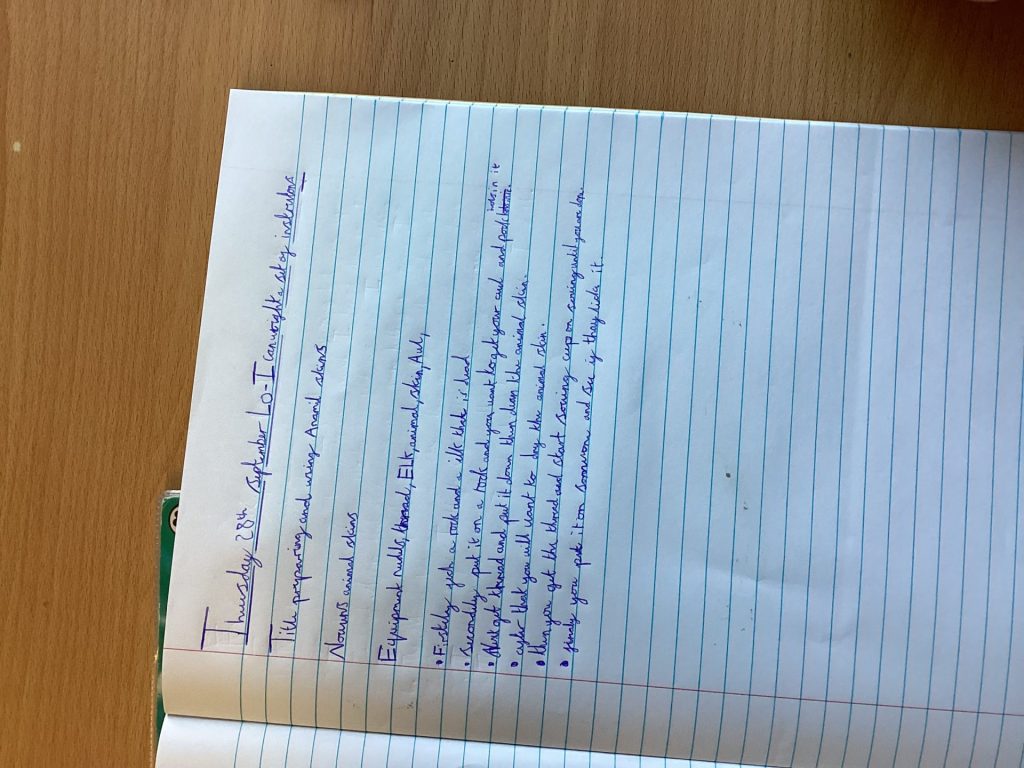 Thursday 28th September LO-I can wright a set of instrutions
Title preparing and using Anamil skins
Nouwns animal skins
Equipment nedds, thread, Elk, animal, skin, Awl,
• Firstley geth a rock and a ilk that is dead
• Secondley put it on a rock and you want forget your awl and pock
holes in it
• Next get thread and put it down then clean the animal skin.
• after that you will want to dry the animal skin.
• then you get the thread and start sowing cary on sowing until you are don.
• finaly you put it on someone and see if they liek it